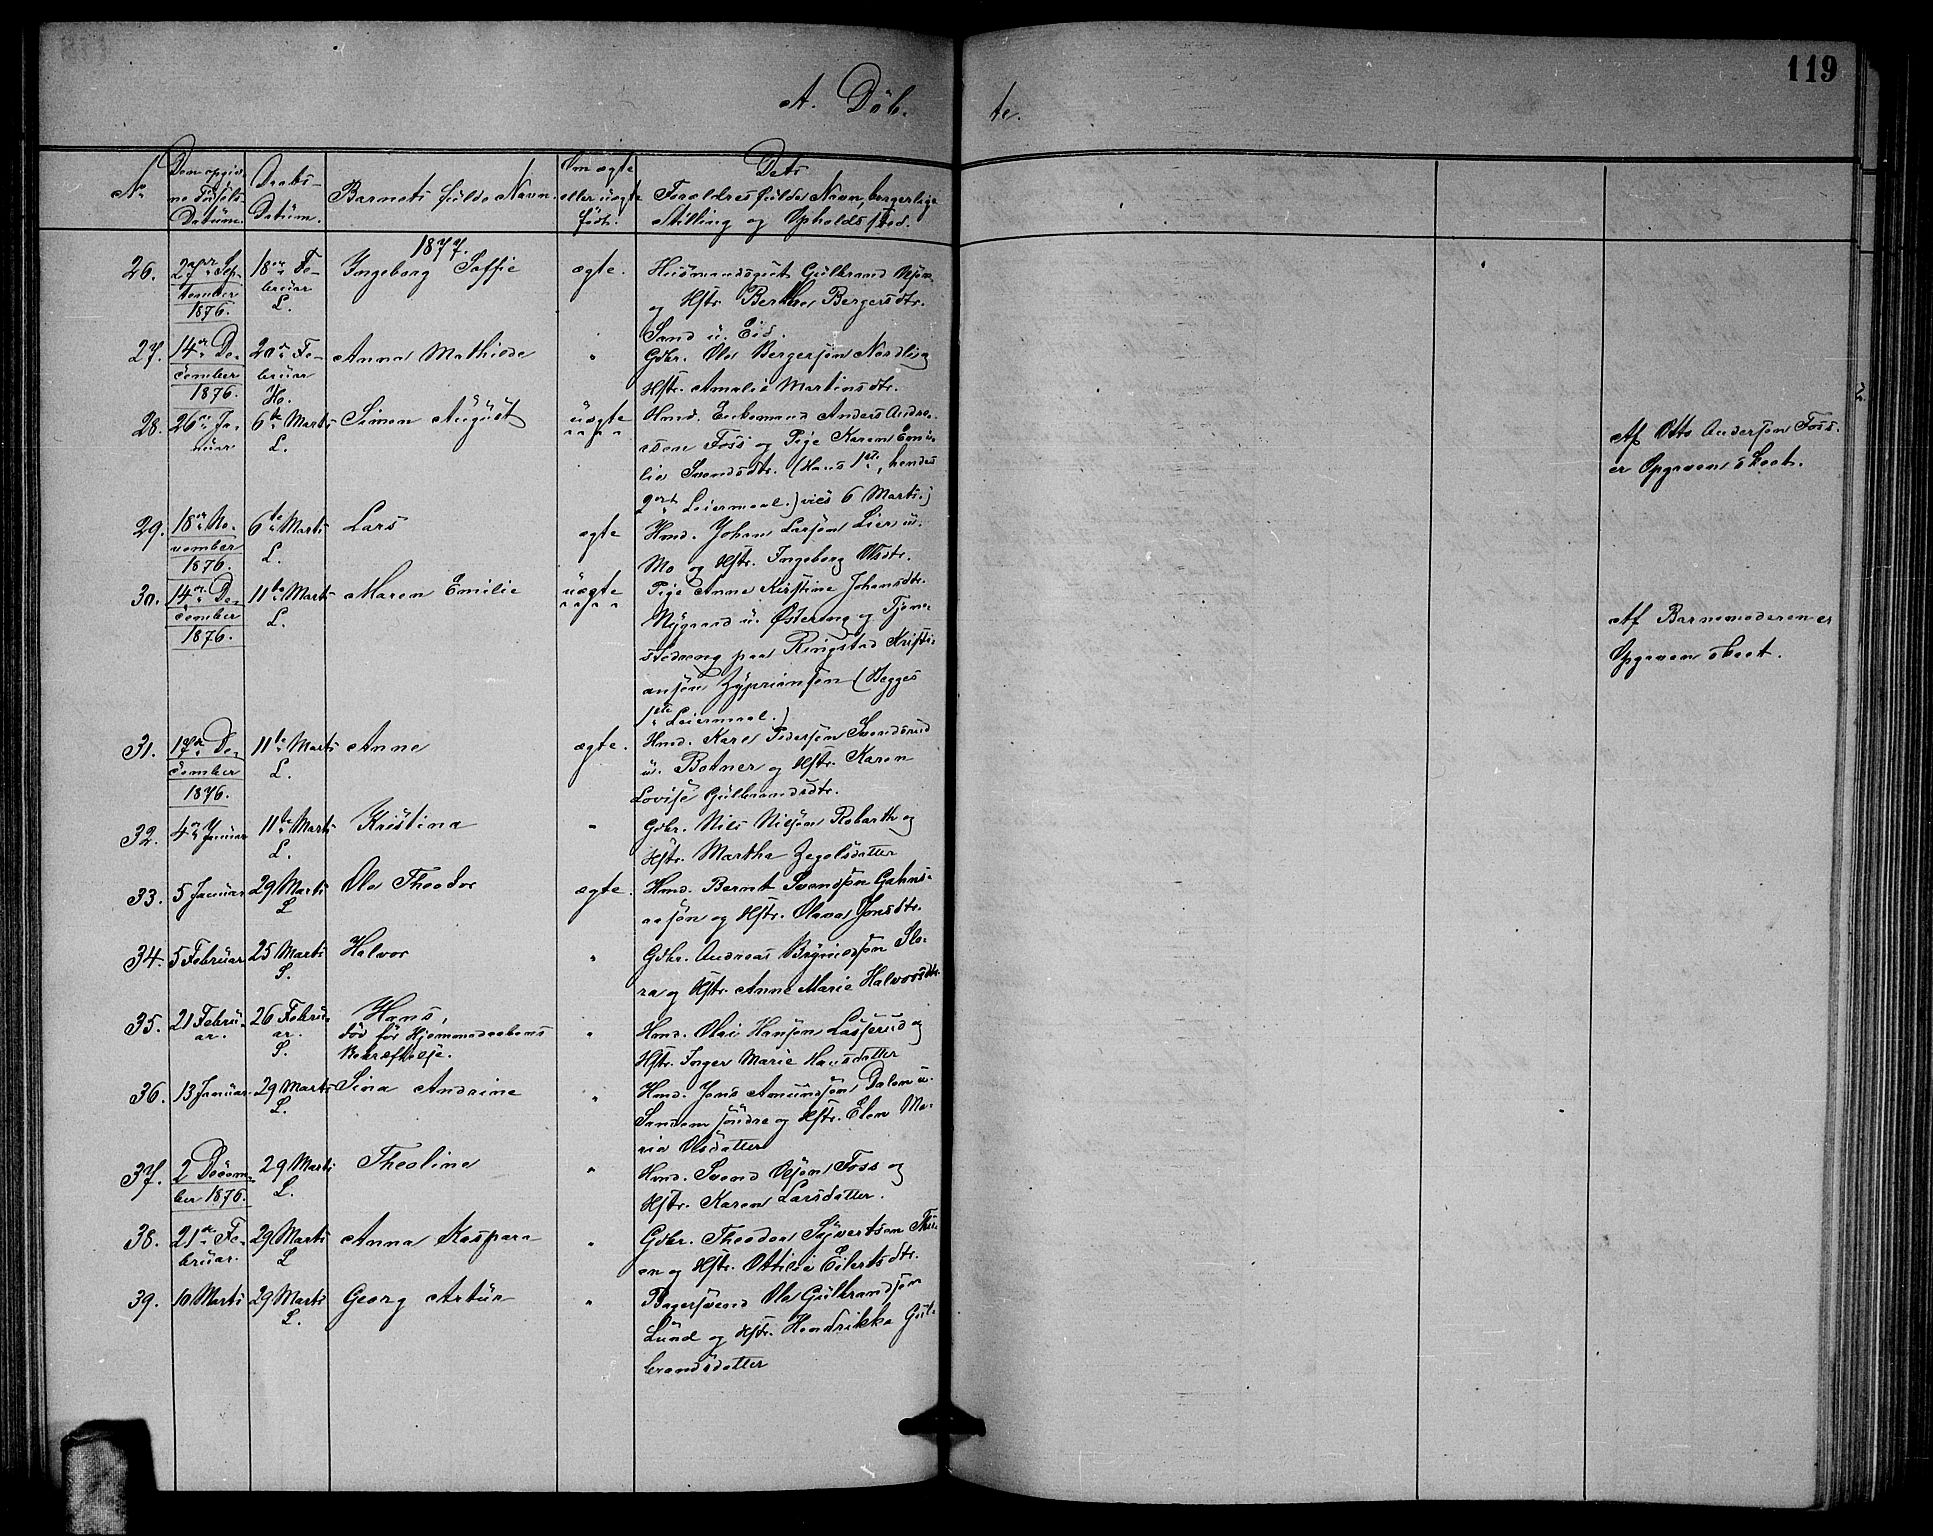 119
A. Döb. te.
No
Den opgiv-
ne Födsels-
Datum.
Daabs-
Datum.
Barnets fulde Navn.
Om ægte
eller uægte
født.
Dets
Forældres fulde Navn, borgerlige
Stilling og Opholdssted.
1877.
26. 27de Sep-
tember
1876.
18de Fe-
bruar
L.
Ingeborg Soffie
ægte.
Husmandsgut Gulbrand
og Hstr. Berthe Bergersdtr.
Sand u. Eid.
27. 14de De-
cember
1876.
20de Fe-
bruar
Ho.
Anna Mathilde
"
Gdbr. Ole Bergersøn Nordli og
Hstr. Amalie Martinsdtr.
28. 26de Ja-
nuar
6te Marts
L.
Simon August
uægte
Hmd. Enkemand Anders Andre-
esen Foss og Pige Karen Emi-
lie Svendsdtr. (Hans 1ste, hendes
2det Leiermaal.) vies 6 Marts.
Af Otto Andersøn Foss
er Opgaven skeet.
29. 18de No-
vember
1876.
6te Marts
L.
Lars
ægte
Hmd. Johan Larsøn Lier u.
Mo og Hstr. Ingeborg Olsdtr.
30. 14de De-
cember
1876.
11te Marts
L.
Maren Emilie
uægte
Pige Anne Kirstine Johansdtr.
Nygaard u. Østeng og Tjene-
stedreng paa Ringstad Kristi-
ansøn Zyprianson (Begges
1ste Leiermaal.)
Af Barnemoderen er
Opgaven skeet.
31. 17de De-
cember
1876.
11te Marts
L.
Anne
ægte.
Hmd. Karl Pedersøn Svendsrud
u. Botner og Hstr. Karen
Lovise Gulbrandsdtr.
32. 4de Januar
11te Marts
L.
Kristina
"
Gdbr. Nils Nilsøn Robarth og
Hstr. Martha Zegelsdatter
33. 5 Januar
29 Marts
L
Ole Theodor
ægte.
Hmd. Bernt Svendsøn Gahns-
aasøn og Hstr. Olava Jonsdtr.
34. 5 Februar
25 Marts
S.
Halvor
"
Gdbr. Andreas Brynildsøn Slo-
ra og Hstr. Anne Marie Halvorsdtr.
35. 21 Febru-
ar.
26 Febru-
ar.
S.
Hans,
död för Hjemmedaabens
Bekræftelse.
"
Hmd. Olai Hansøn Lasserud og
Hstr. Inger Marie Hansdatter
36. 13 Januar.
29 Marts
L.
Sina Andrine
"
Hmd. Jens Amundsøn Dalen u.
Sandem søndre og Hstr. Elen Ma-
ria Olsdatter
37. 2 Decem-
ber 1876.
29 Marts
L.
Theoline
"
Hmd. Svend Olsøn Foss og
Hstr. Karen Larsdatter.
38. 21de Fe-
bruar.
29 Marts
L
Anna Kaspara
"
Gdbr. Theodor Syvertsen Thu-
en og Hstr. Ottilie Eilertsdtr.
39. 10 Marts
29 Marts
L.
Georg Artur
"
Bagersvend Ole Gulbrandsøn
Lund og Hstr. Hendrikke Gul-
brandsdatter